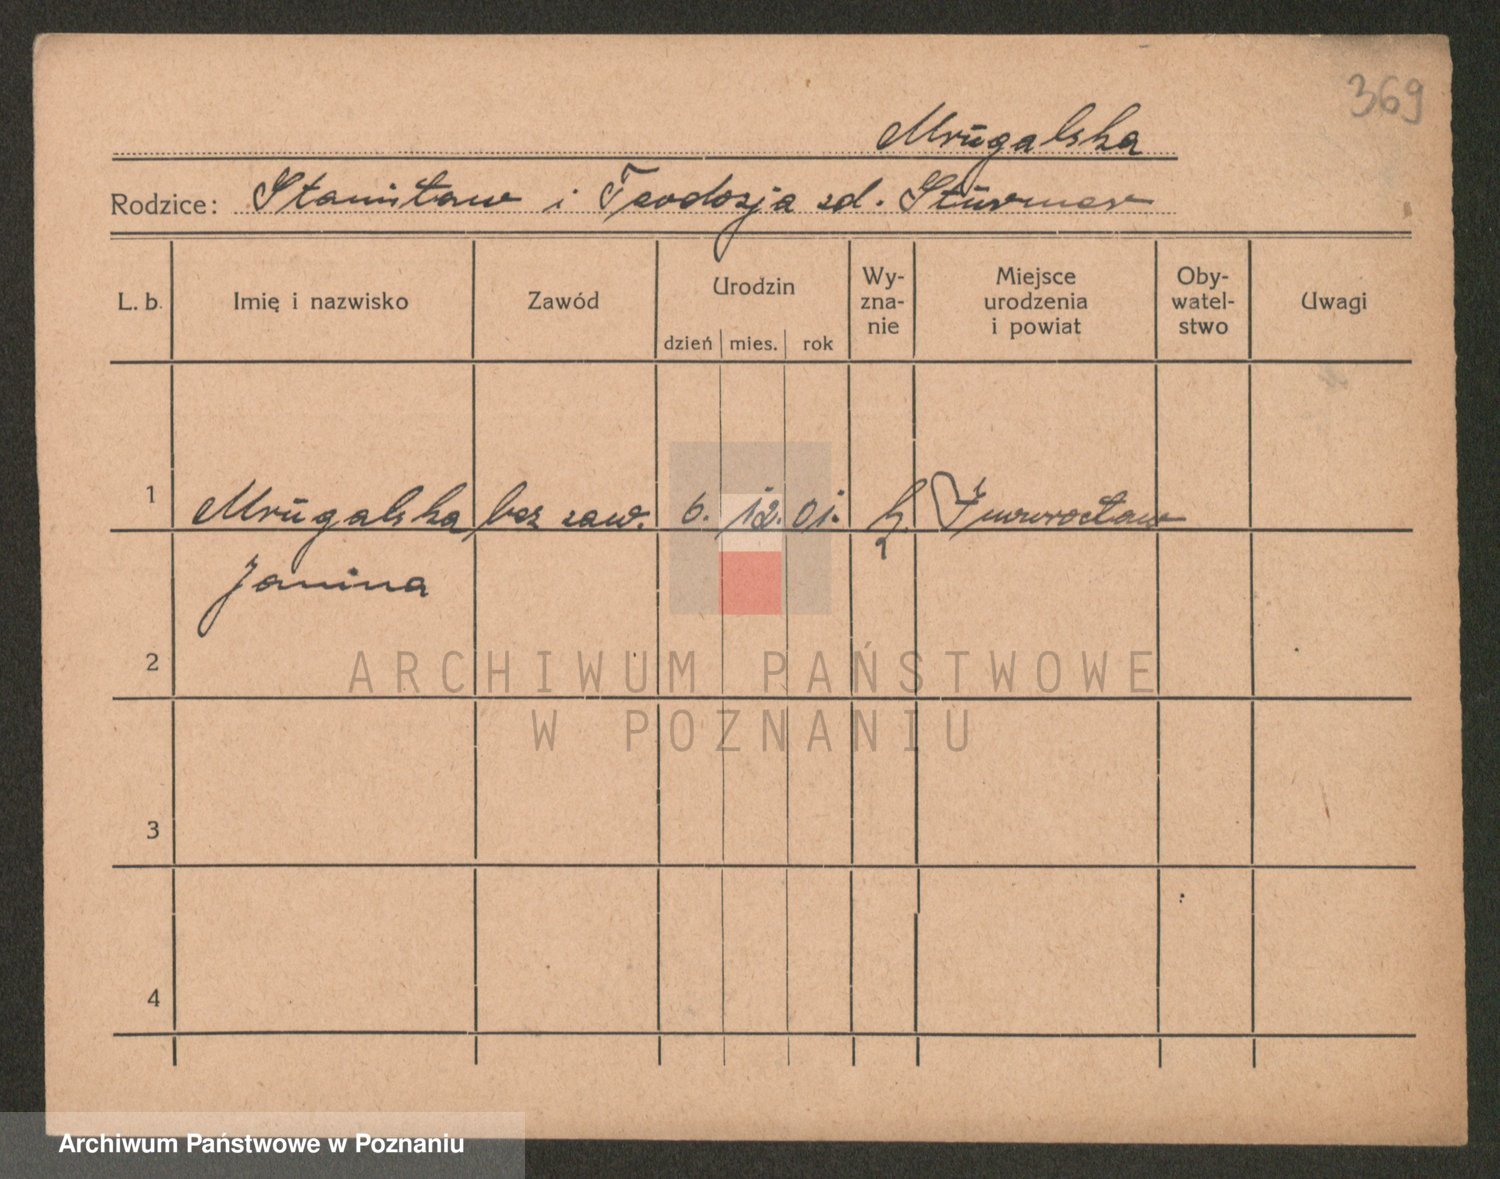 369
Mrugalska
Rodzice: Stanisław i Teodozja zd. Stürmer
L. b. Imię i nazwisko Zawód Urodzin dzień mies. rok Wy-zna-nie Miejsce urodzenia i powiat Oby-watel-stwo Uwagi
1 Mrugalska bez zaw. 6. 12. 01. Inowrocław
Janina
2
3
4
ARCHIWUM PAŃSTWOWE
W POZNANIU
Archiwum Państwowe w Poznaniu